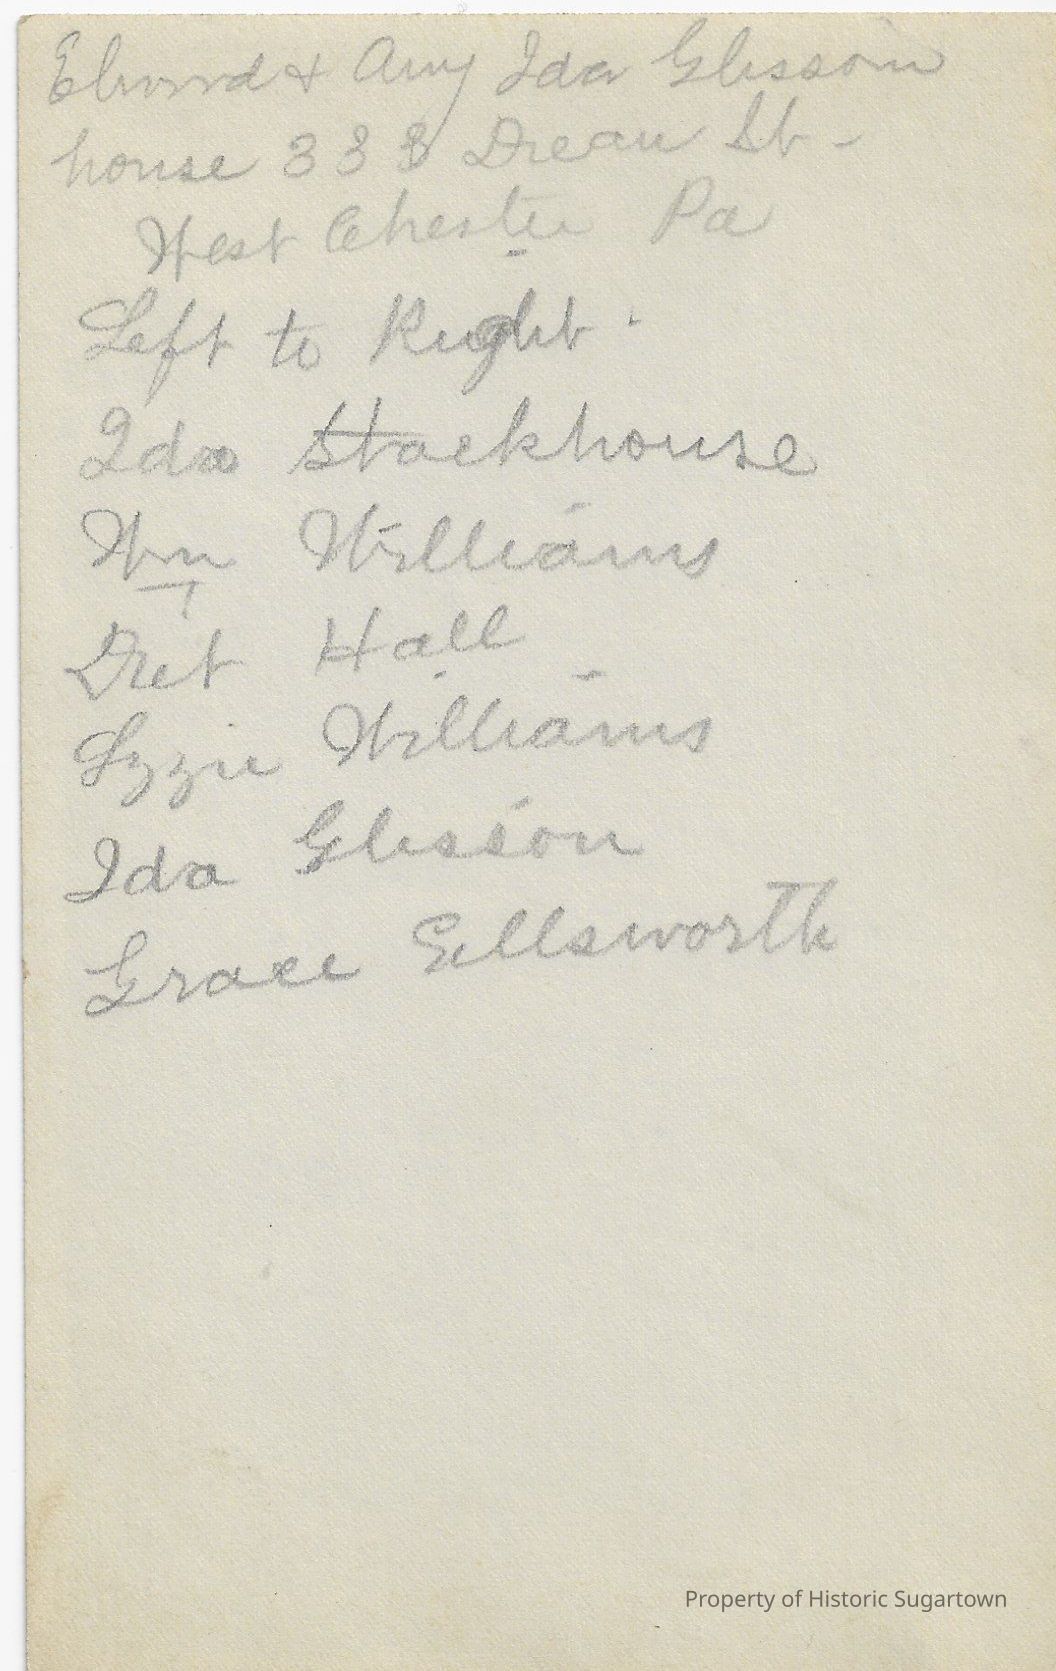 Elwood & Amy Ida Glisson
house 333 Drean St -
West Chester Pa
Left to Right
Ida Stackhouse
Wm Williams
Diet Hall
Lzzie Williams
Ida Glisson
Grace Ellsworth
Property of Historic Sugartown